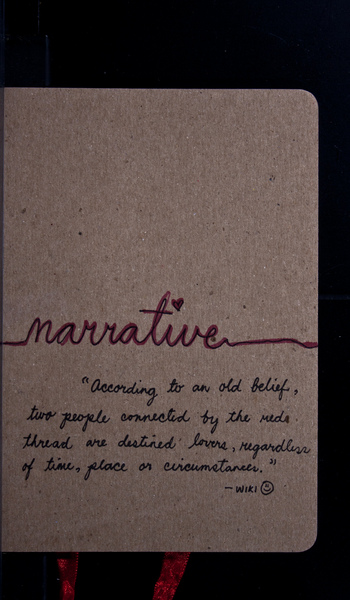 narrative
"According to an old belief,
two people connected by the red
thread are destined lovers, regardless
of time, place or circumstances."
- WIKI